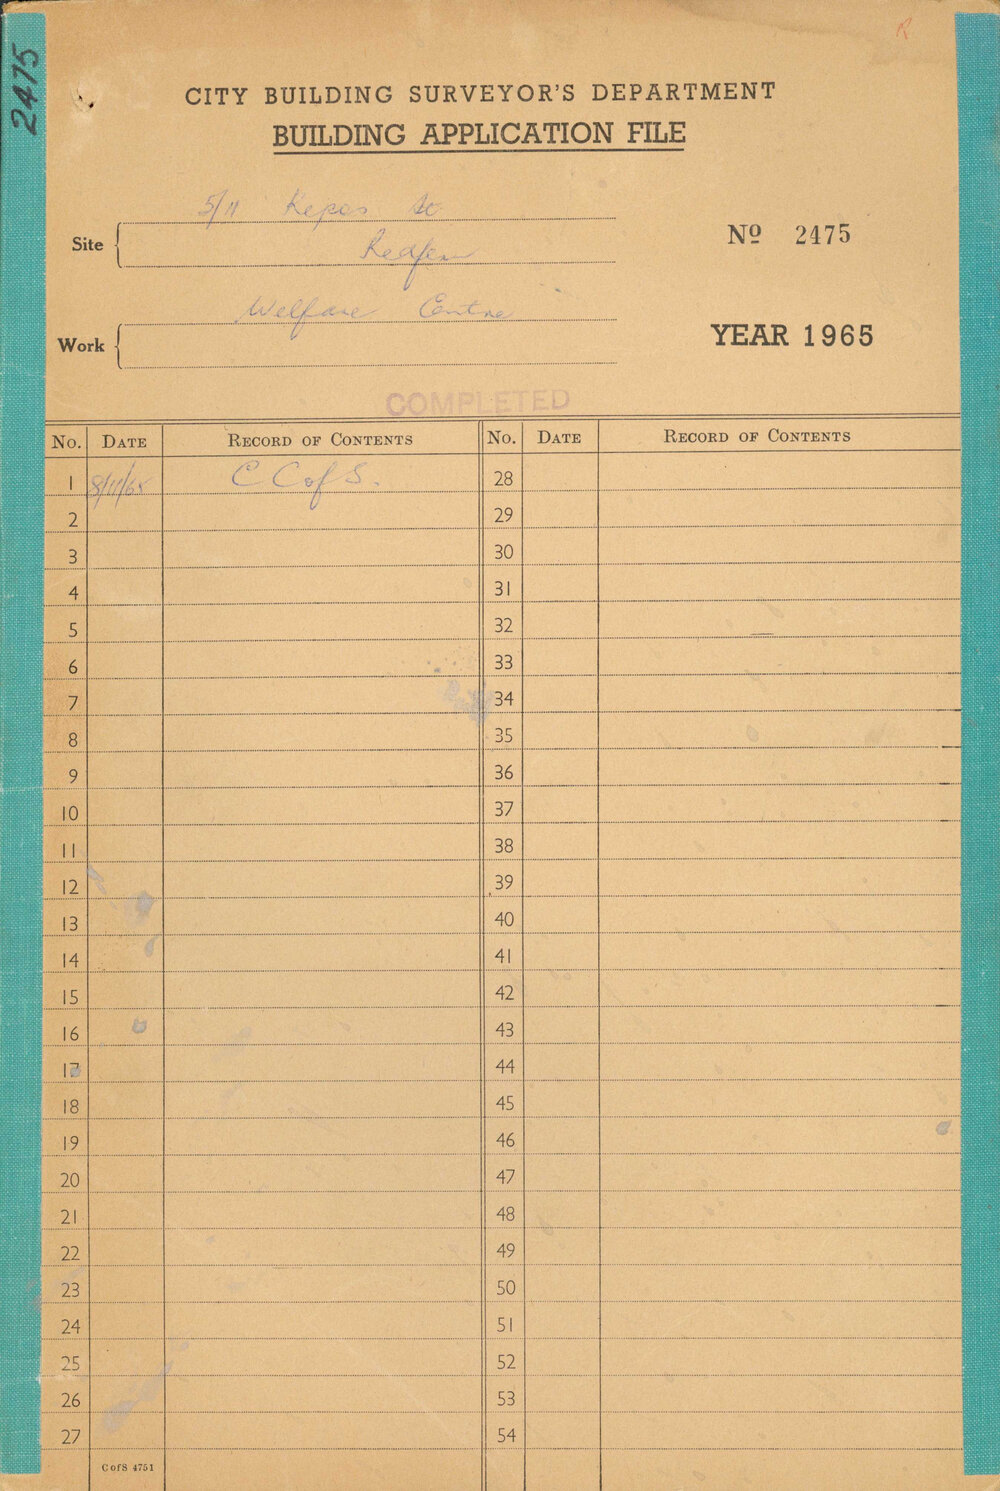 2475
R
CITY BUILDING SURVEYOR'S DEPARTMENT
BUILDING APPLICATION FILE
Site
5/11 Kepos St
Redfern
Nº 2475
Work
Welfare Centre
YEAR 1965
COMPLETED
No. DATE RECORD OF CONTENTS No. DATE RECORD OF CONTENTS
1 8/11/65 C C of S. 28
2 29
3 30
4 31
5 32
6 33
7 34
8 35
9 36
10 37
11 38
12 39
13 40
14 41
15 42
16 43
17 44
18 45
19 46
20 47
21 48
22 49
23 50
24 51
25 52
26 53
27 54
C of S 4751